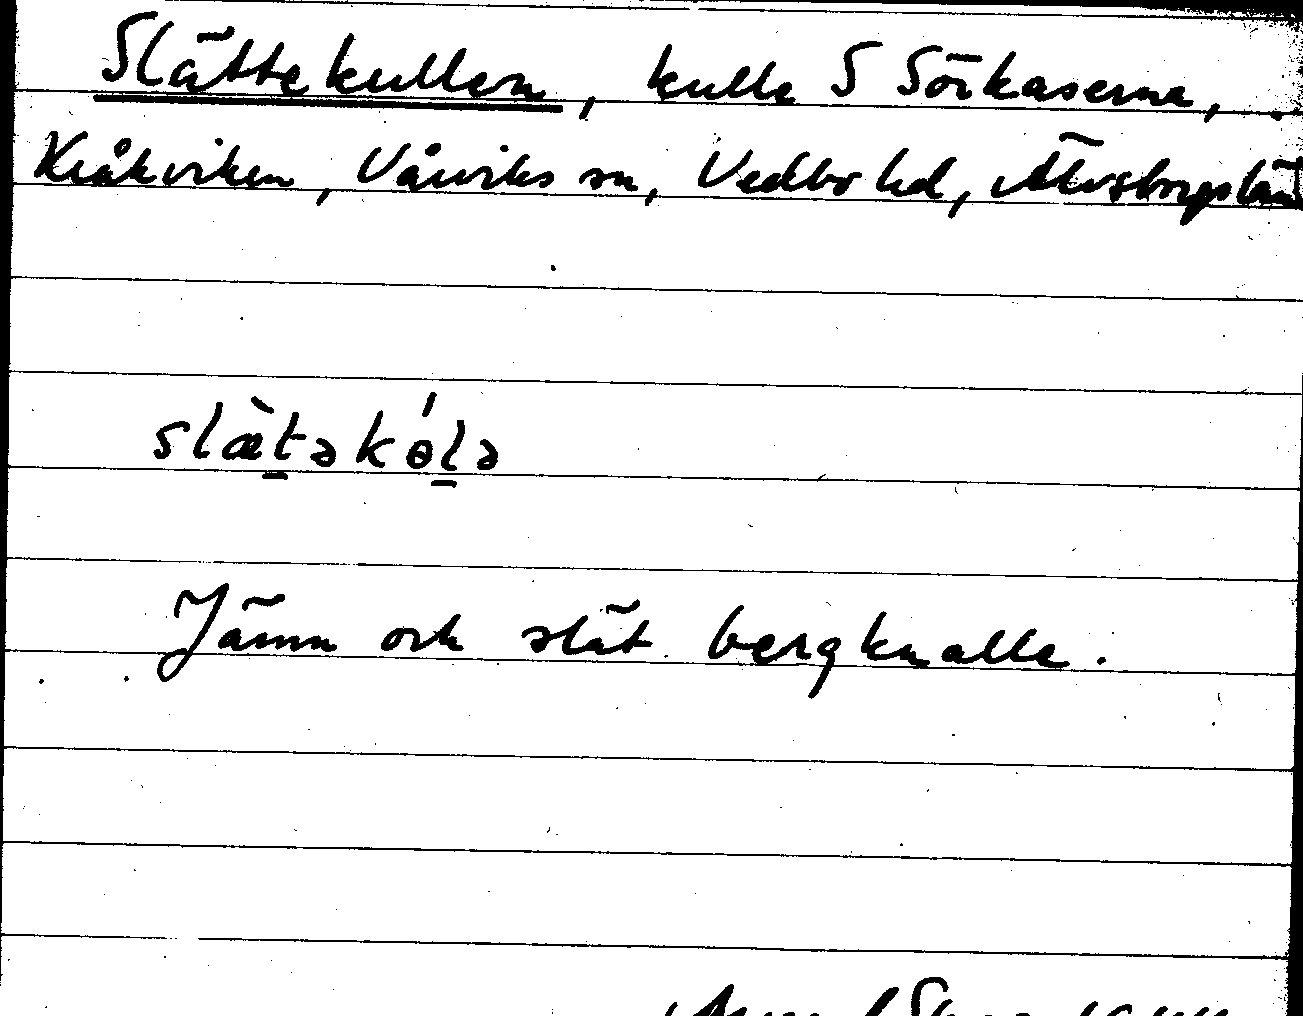 Slättekullen, kulle S Sörkaserna,
Kråkviken, Vårviks sn, Vedbo hd, Älvsborgs län
slæ̀təkɵ́lə
Jämn och slät bergknalle.